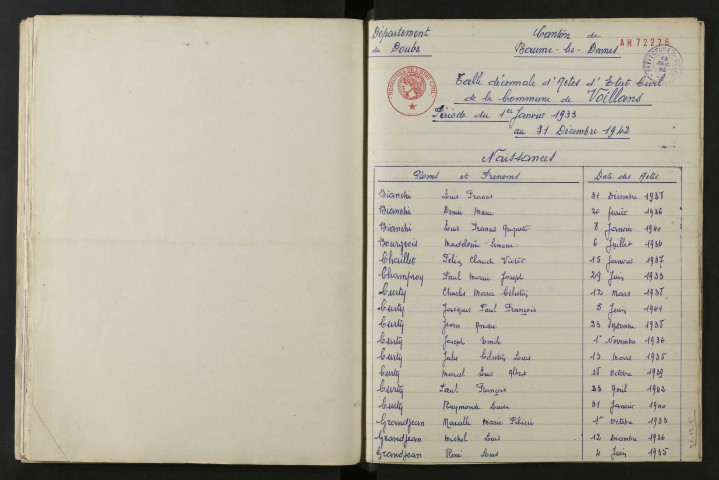 Département
du Doubs
Canton de
Baume-les-Dames
AH 72276
Table décennale d'Actes d'Etat Civil
de la Commune de Voillans
Période du 1er Janvier 1933
au 31 Décembre 1942
Naissances
Noms et Prénoms Date des Actes
Bianchi Louis Francis 31 Décembre 1938
Bianchi Denise Marie 20 février 1936
Bianchi Louis Francis Auguste 8 Janvier 1940
Bourgeois Madeleine Simone 6 Juillet 1934
Chaillet Félix Claude Victor 15 Janvier 1937
Champroy Paul Marie Joseph 29 Juin 1933
Curty Charles Marie Célestin 12 Mars 1938
Curty Jacques Paul François 5 Juin 1941
Curty Jean 23 Septembre 1938
Curty Joseph Emile 1er Novembre 1936
Curty Jules Célestin Louis 13 mars 1935
Curty Marcel Louis Albert 28 Octobre 1939
Curty Paul François 23 Avril 1942
Curty Raymonde Louise 31 Janvier 1940
Grandjean Marcelle Marie 1er Octobre 1933
Grandjean Michel Louis 12 Décembre 1936
Grandjean René Louis 4 Juin 1935